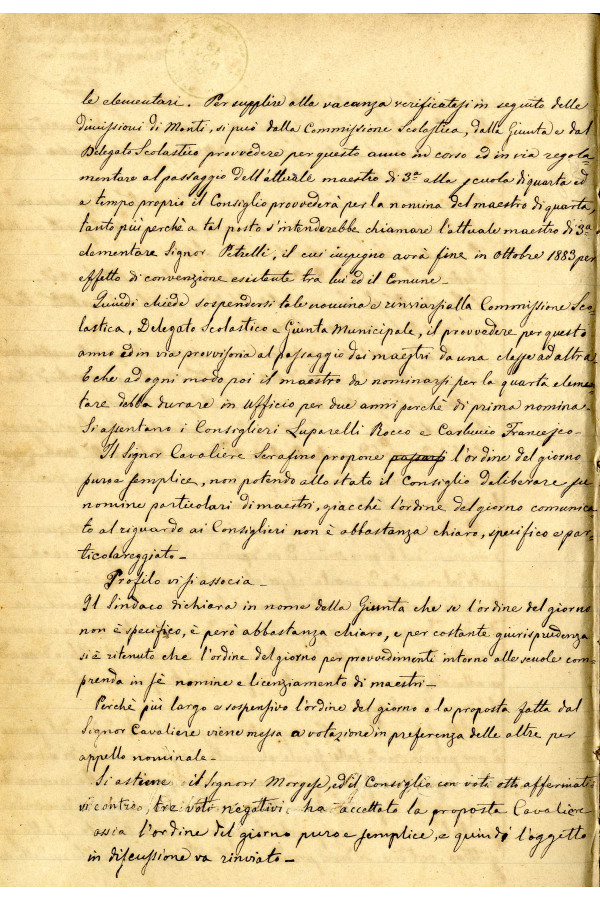 le elementari. Per supplire alla vacanza verificatasi in seguito delle
dimissioni di Monti, si può dalla Commissione Scolastica, dalla Giunta e dal
Delegato Scolastico provvedere per questo anno in corso ed in via regola-
mentare al passaggio dell'attuale maestro di 3ª alla scuola di quarta ed
a tempo proprio il Consiglio provvederà per la nomina del maestro di quarta,
tanto più perchè a tal posto s'intenderebbe chiamare l'attuale maestro di 3ª
elementare Signor Petrelli, il cui impegno avrà fine in Ottobre 1883 per
effetto di convenzione esistente tra lui ed il Comune_
Quindi chiede sospendersi tale nomina e rinviarsi alla Commissione Sco-
lastica, Delegato Scolastico e Giunta Municipale, il provvedere per questo
anno ed in via provvisoria al passaggio dei maestri da una classe ad altra
E che ad ogni modo poi il maestro da nominarsi per la quarta elemen-
tare debba durare in ufficio per due anni perchè di prima nomina_
Si assentano i Consiglieri Luparelli Rocco e Carbucio Francesco_
Il Signor Cavaliere Serafino propone passarsi l'ordine del giorno
puro e semplice, non potendo allo stato il Consiglio deliberare su
nomine particolari di maestri, giacchè l'ordine del giorno comunica-
to al riguardo ai Consiglieri non è abbastanza chiaro, specifico e par-
ticolareggiato_
Profilo vi si associa_
Il Sindaco dichiara in nome della Giunta che se l'ordine del giorno
non è specifico, è però abbastanza chiaro, e per costante giurisprudenza
si è ritenuto che l'ordine del giorno per provvedimenti intorno alle scuole com-
prenda in sè nomine e licenziamento di maestri_
Perchè più largo e sospensivo l'ordine del giorno o la proposta fatta dal
Signor Cavaliere viene messa a votazione in preferenza delle altre per
appello nominale_
Si astiene il Signor Morgese, ed il Consiglio con voti otto affermati
vi contro tre voti negativi ha accettato la proposta Cavaliere
ossia l'ordine del giorno puro e semplice, e quindi l'oggetto
in discussione va rinviato_